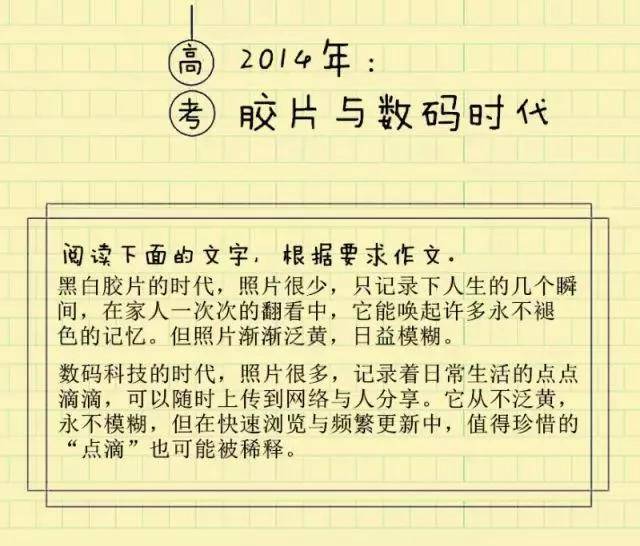 高考
2014年：
胶片与数码时代
阅读下面的文字，根据要求作文．
黑白胶片的时代，照片很少，只记录下人生的几个瞬
间，在家人一次次的翻看中，它能唤起许多永不褪
色的记忆。但照片渐渐泛黄，日益模糊。
数码科技的时代，照片很多，记录着日常生活的点点
滴滴，可以随时上传到网络与人分享。它从不泛黄，
永不模糊，但在快速浏览与频繁更新中，值得珍惜的
“点滴”也可能被稀释。